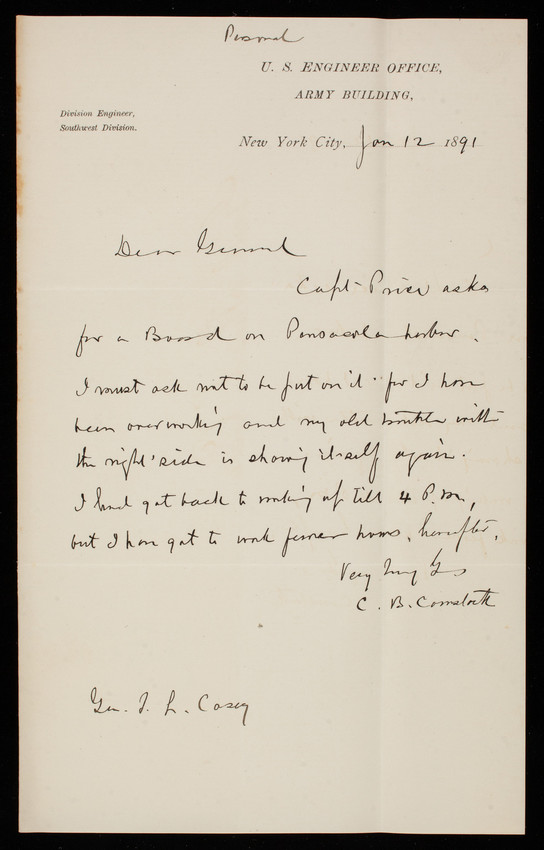 Personal
U. S. ENGINEER OFFICE,
ARMY BUILDING,
Division Engineer,
Southwest Division.
New York City, Jan 12 1891
Dear General
Capt Price asks
for a Board on Pensacola harbor.
I must ask not to be put on it for I have
been overworking and my old trouble with
the right side is showing itself again.
I had got back to working up till 4 P.M.,
but I have got to work fewer hours, hereafter.
Very Truly Yrs
C. B. Comstock
Gen. T. L. Casey